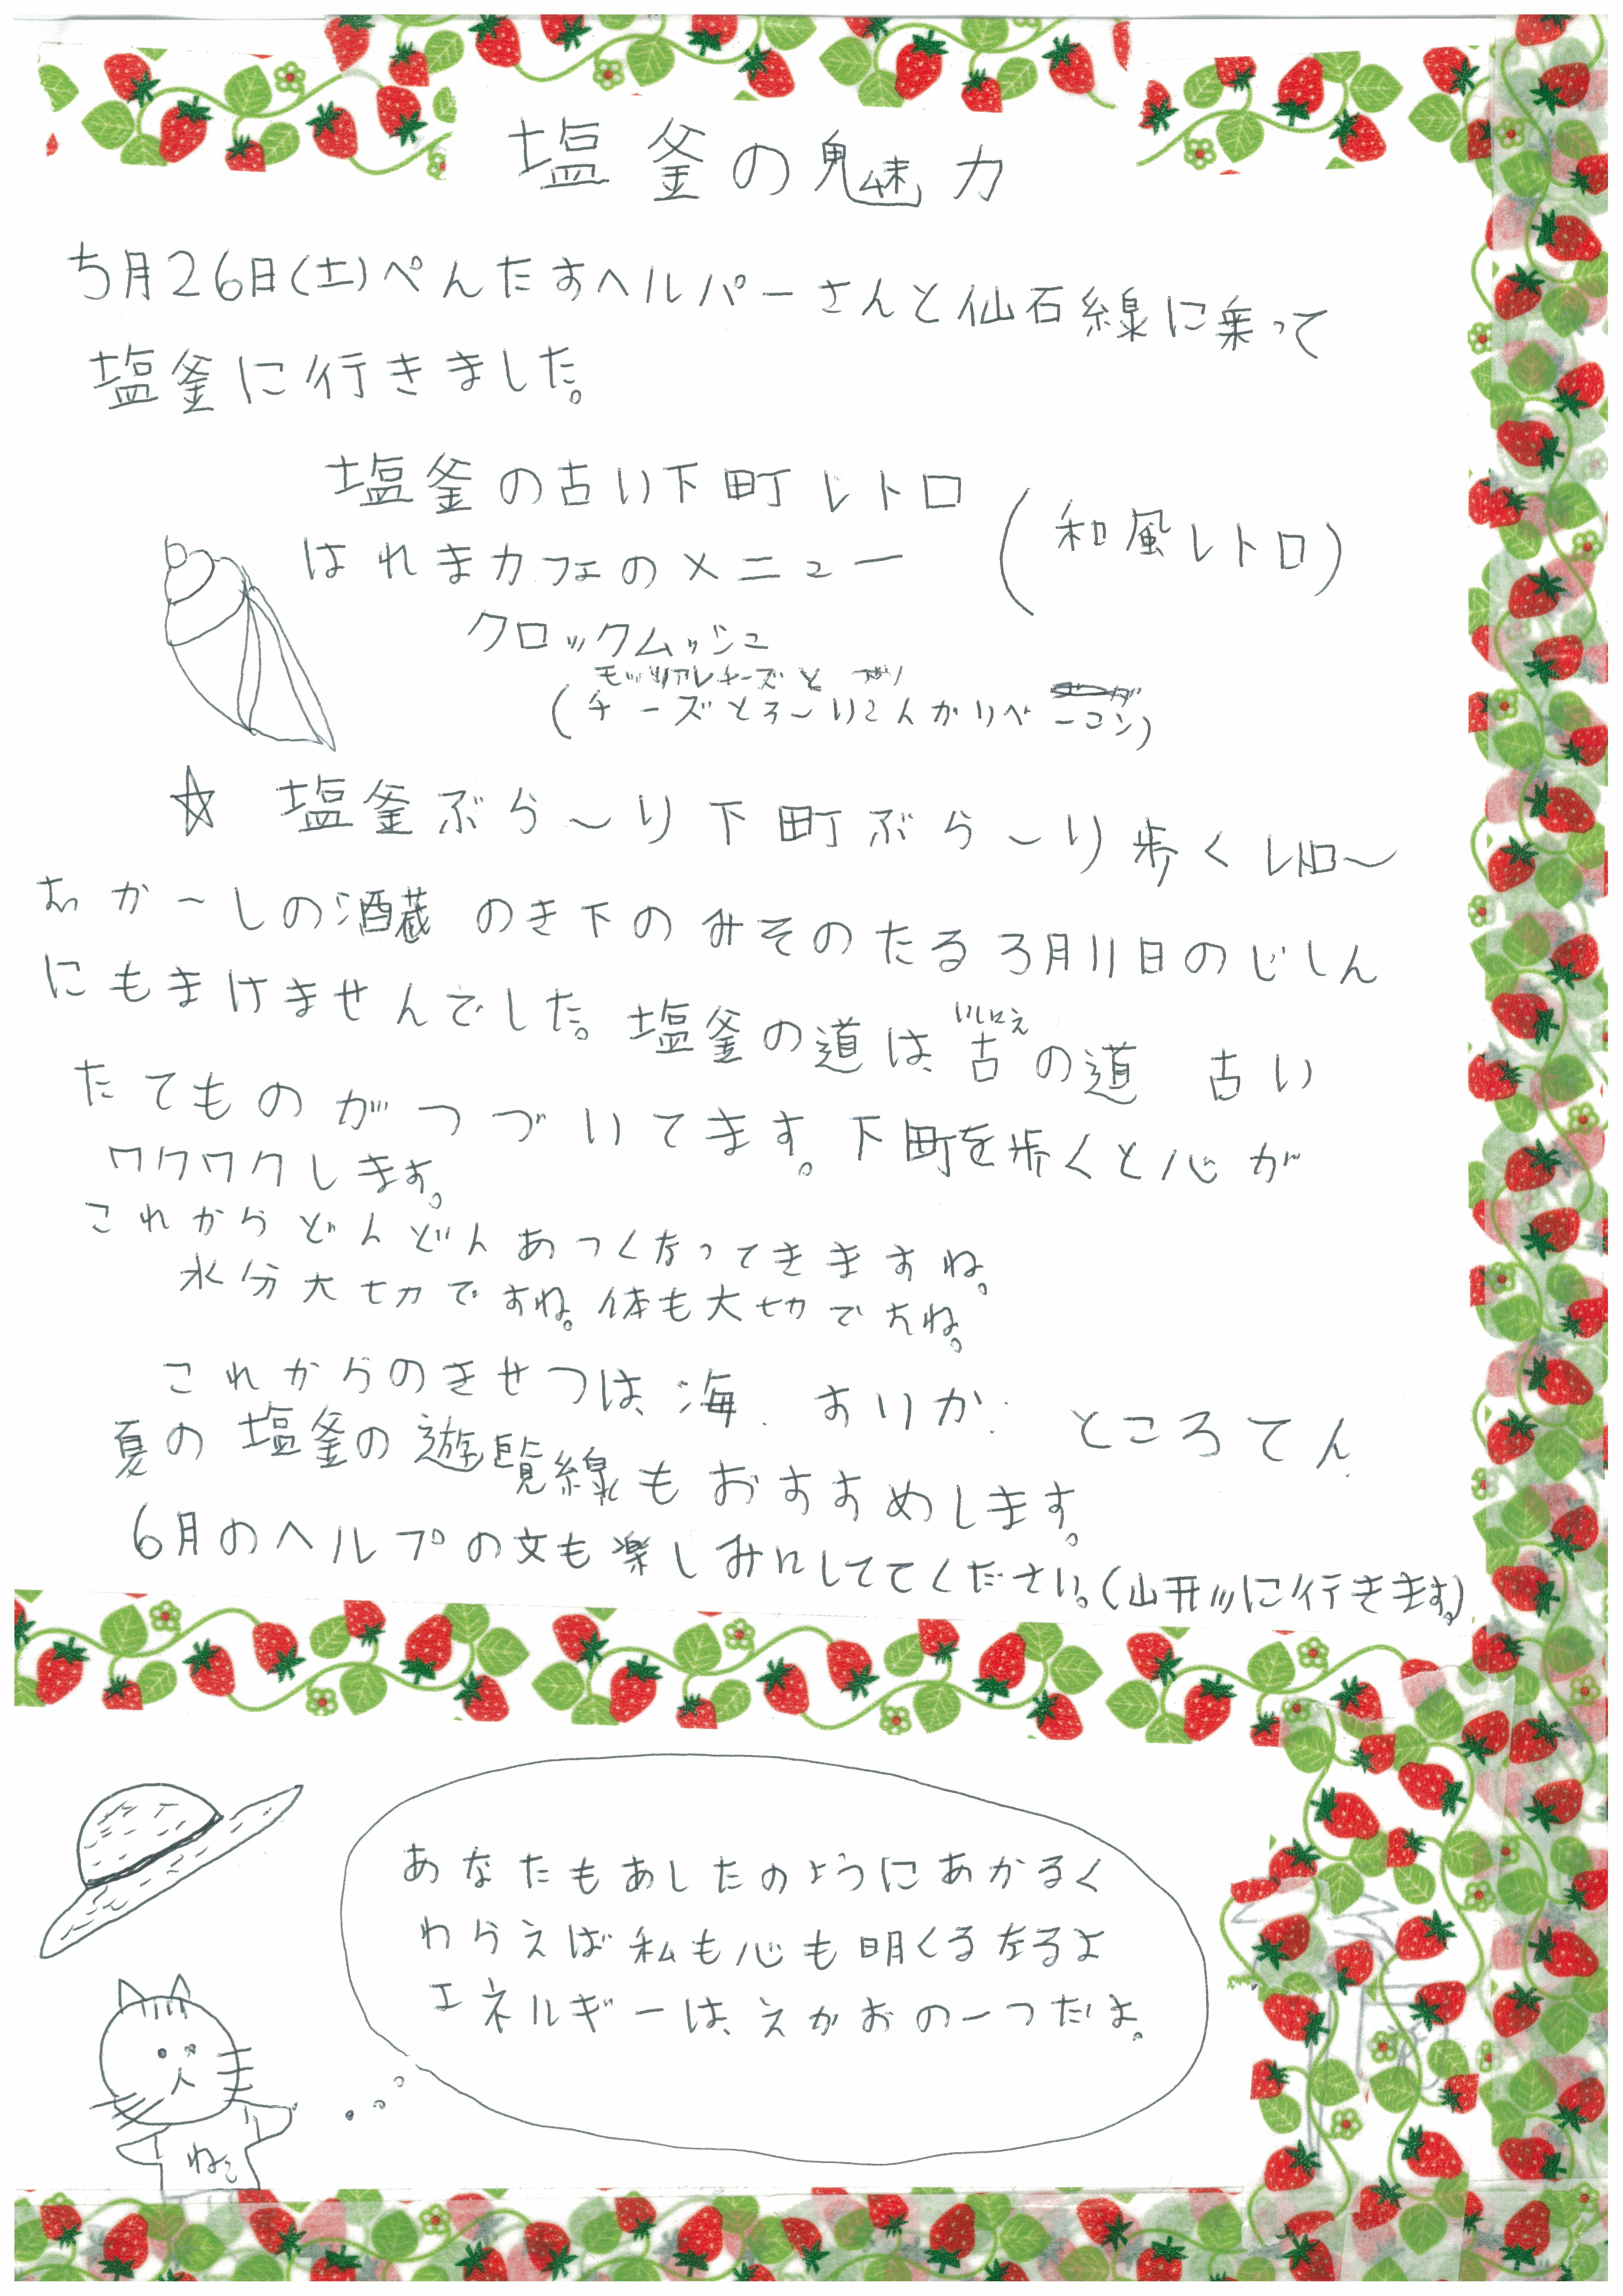 塩釜の魅力
5月26日(土)ぺんたすヘルパーさんと仙石線に乗って
塩釜に行きました。
塩釜の古い下町レトロ
(和風レトロ)
はれまカフェのメニュー
クロックムッシュ
モッツァレチーズと
(チーズとろ〜りこんがりベーコン)
☆ 塩釜ぶら〜り下町ぶら〜り歩くレトロ〜
むか〜しの酒蔵 のき下のみそのたる 3月11日のじしん
にもまけませんでした。塩釜の道は、古の道 古い
いにしえ
たてものがつづいてます。下町を歩くと心が
ワクワクします。
これからどんどんあつくなってきますね。
水分大切ですね。体も大切ですね。
これからのきせつは、海. すいか. ところてん
夏の塩釜の遊覧線もおすすめします。
6月のヘルプの文も楽しみにしててください。(山形に行きます。)
あなたもあしたのようにあかるく
わらえば私も心も明くるなるよ
エネルギーは、えがおの一つだよ。
ねこ